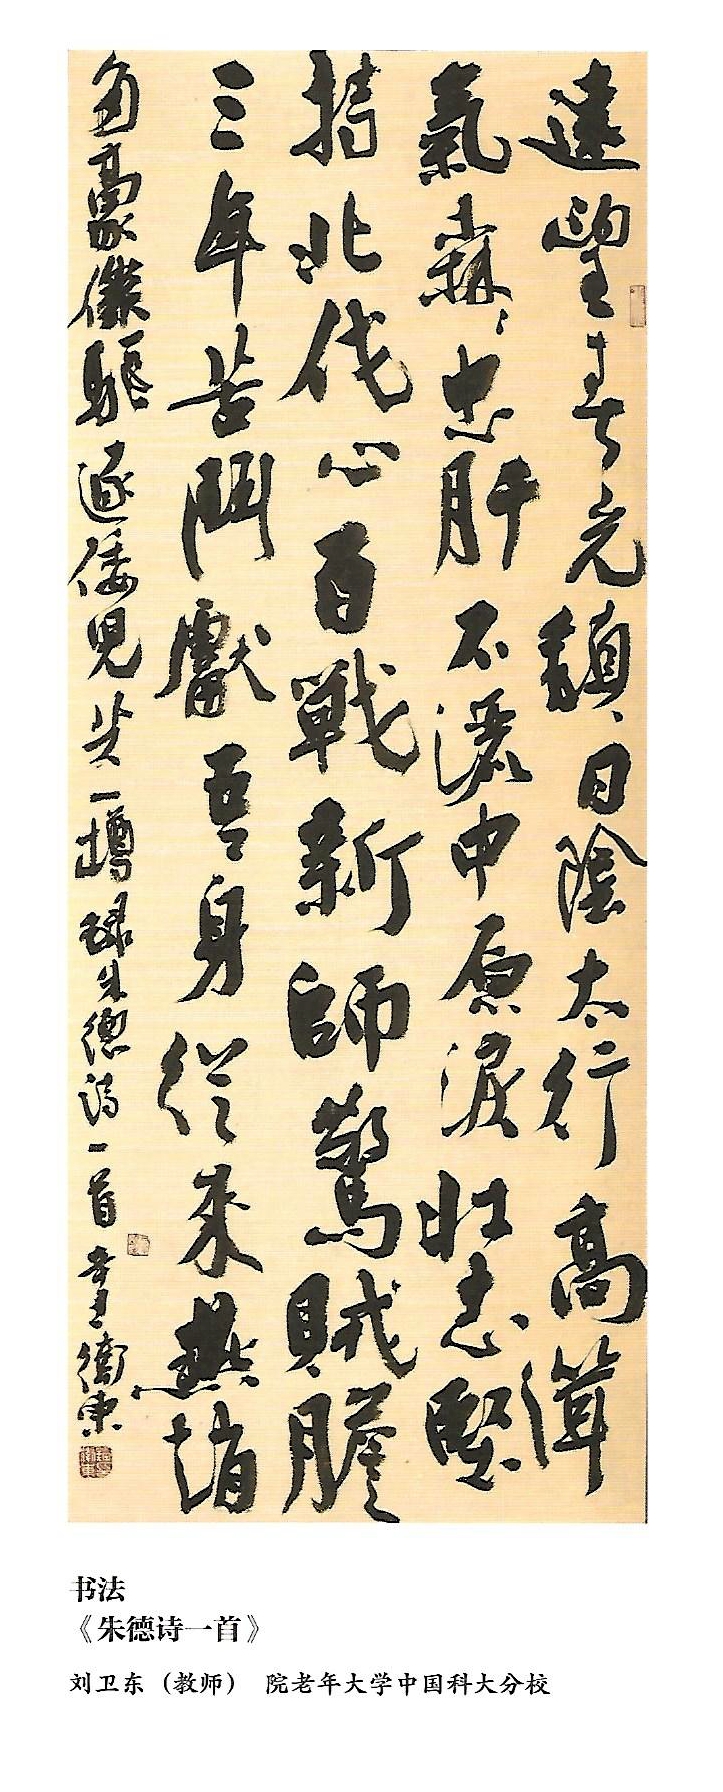 遠望春光鎮日陰太行高聳
氣森〻忠肝不灑中原淚壯志堅
持北伐心百戰新師驚賊膽
三年苦鬥獻吾身從來燕趙
多豪傑驅逐倭兒共一樽 錄朱德詩一首 衛東
书法
《朱德诗一首》
刘卫东（教师） 院老年大学中国科大分校